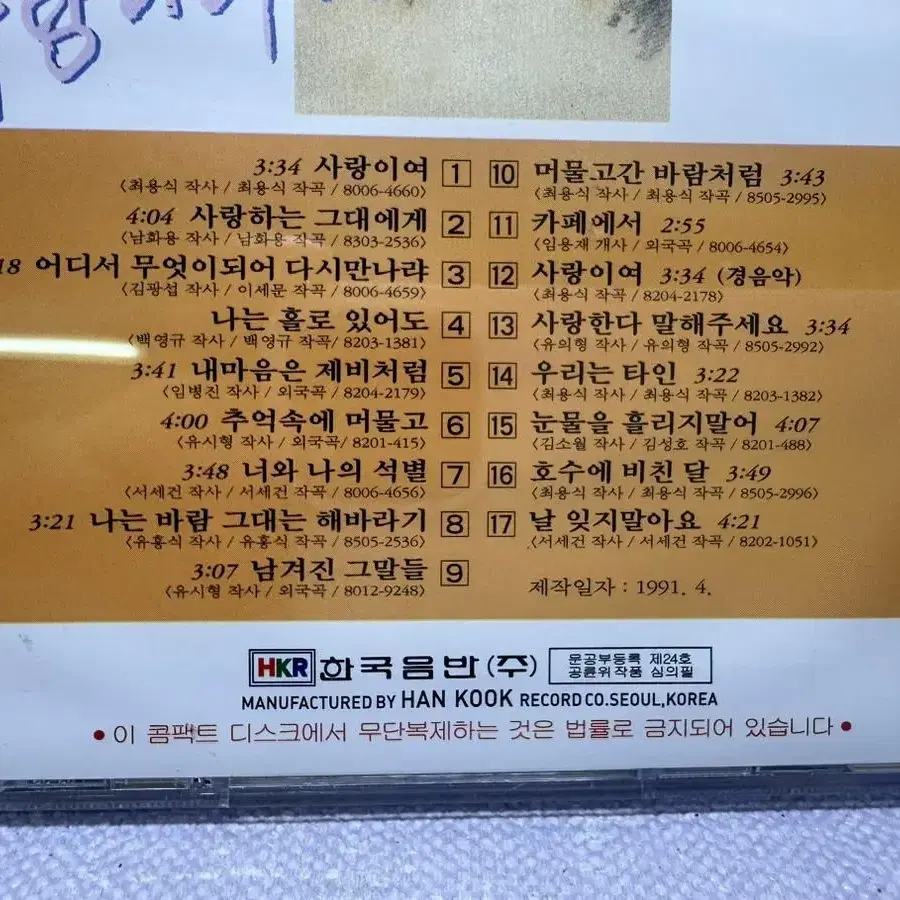 3:34 사랑이여 1
〈최용식 작사 / 최용식 작곡 / 8006-4660〉
4:04 사랑하는 그대에게 2
〈남화용 작사 / 남화용 작곡 / 8303-2536〉
18 어디서 무엇이되어 다시만나랴 3
〈김광섭 작사 / 이세문 작곡 / 8006-4659〉
나는 홀로 있어도 4
〈백영규 작사 / 백영규 작곡 / 8203-1381〉
3:41 내마음은 제비처럼 5
〈임병진 작사 / 외국곡 / 8204-2179〉
4:00 추억속에 머물고 6
〈유시형 작사 / 외국곡 / 8201-415〉
3:48 너와 나의 석별 7
〈서세건 작사 / 서세건 작곡 / 8006-4656〉
3:21 나는 바람 그대는 해바라기 8
〈유흥식 작사 / 유흥식 작곡 / 8505-2536〉
3:07 남겨진 그말들 9
〈유시형 작사 / 외국곡 / 8012-9248〉
10 머물고간 바람처럼 3:43
〈최용식 작사 / 최용식 작곡 / 8505-2995〉
11 카페에서 2:55
〈임용재 개사 / 외국곡 / 8006-4654〉
12 사랑이여 3:34 (경음악)
〈최용식 작곡 / 8204-2178〉
13 사랑한다 말해주세요 3:34
〈유의형 작사 / 유의형 작곡 / 8505-2992〉
14 우리는 타인 3:22
〈최용식 작사 / 최용식 작곡 / 8203-1382〉
15 눈물을 흘리지말어 4:07
〈김소월 작사 / 김성호 작곡 / 8201-488〉
16 호수에 비친 달 3:49
〈최용식 작사 / 최용식 작곡 / 8505-2996〉
17 날 잊지말아요 4:21
〈서세건 작사 / 서세건 작곡 / 8202-1051〉
제작일자 : 1991. 4.
HKR 한국음반(주)
문공부등록 제24호
공륜위작품 심의필
MANUFACTURED BY HAN KOOK RECORD CO. SEOUL, KOREA
• 이 콤팩트 디스크에서 무단복제하는 것은 법률로 금지되어 있습니다 •